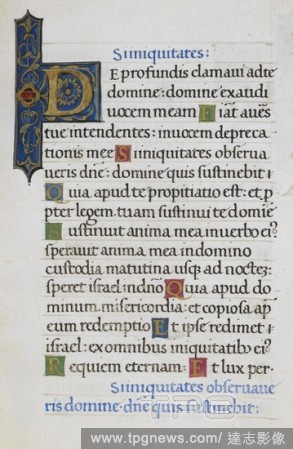 Si iniquitates:
De profundis clamavi ad te
domine: domine exaudi
vocem meam Fiāt aures
tue intendentes: in vocem depreca
tionis mee Si iniquitates observa
veris dn̄e: domine quis sustinebit:
Quia apud te propitiatio est: et p
pter legem tuam sustinui te domīe
Sustinuit anima mea in verbo ei?
speravit anima mea in domino
custodia matutina usq; ad noctez:
speret israel in dn̄o Quia apud do
minum misericordia: et copiosa ap
eum redemptio Et ipse redimet
israel: ex omnibus iniquitatib ei?
Requiem eternam: Et lux per-
Si iniquitates observave
ris domine. dn̄e quis sustinebit:
www.tpgnews.com 達志影像